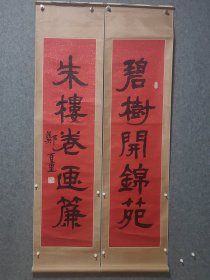 碧樹開錦苑
朱樓卷画簾